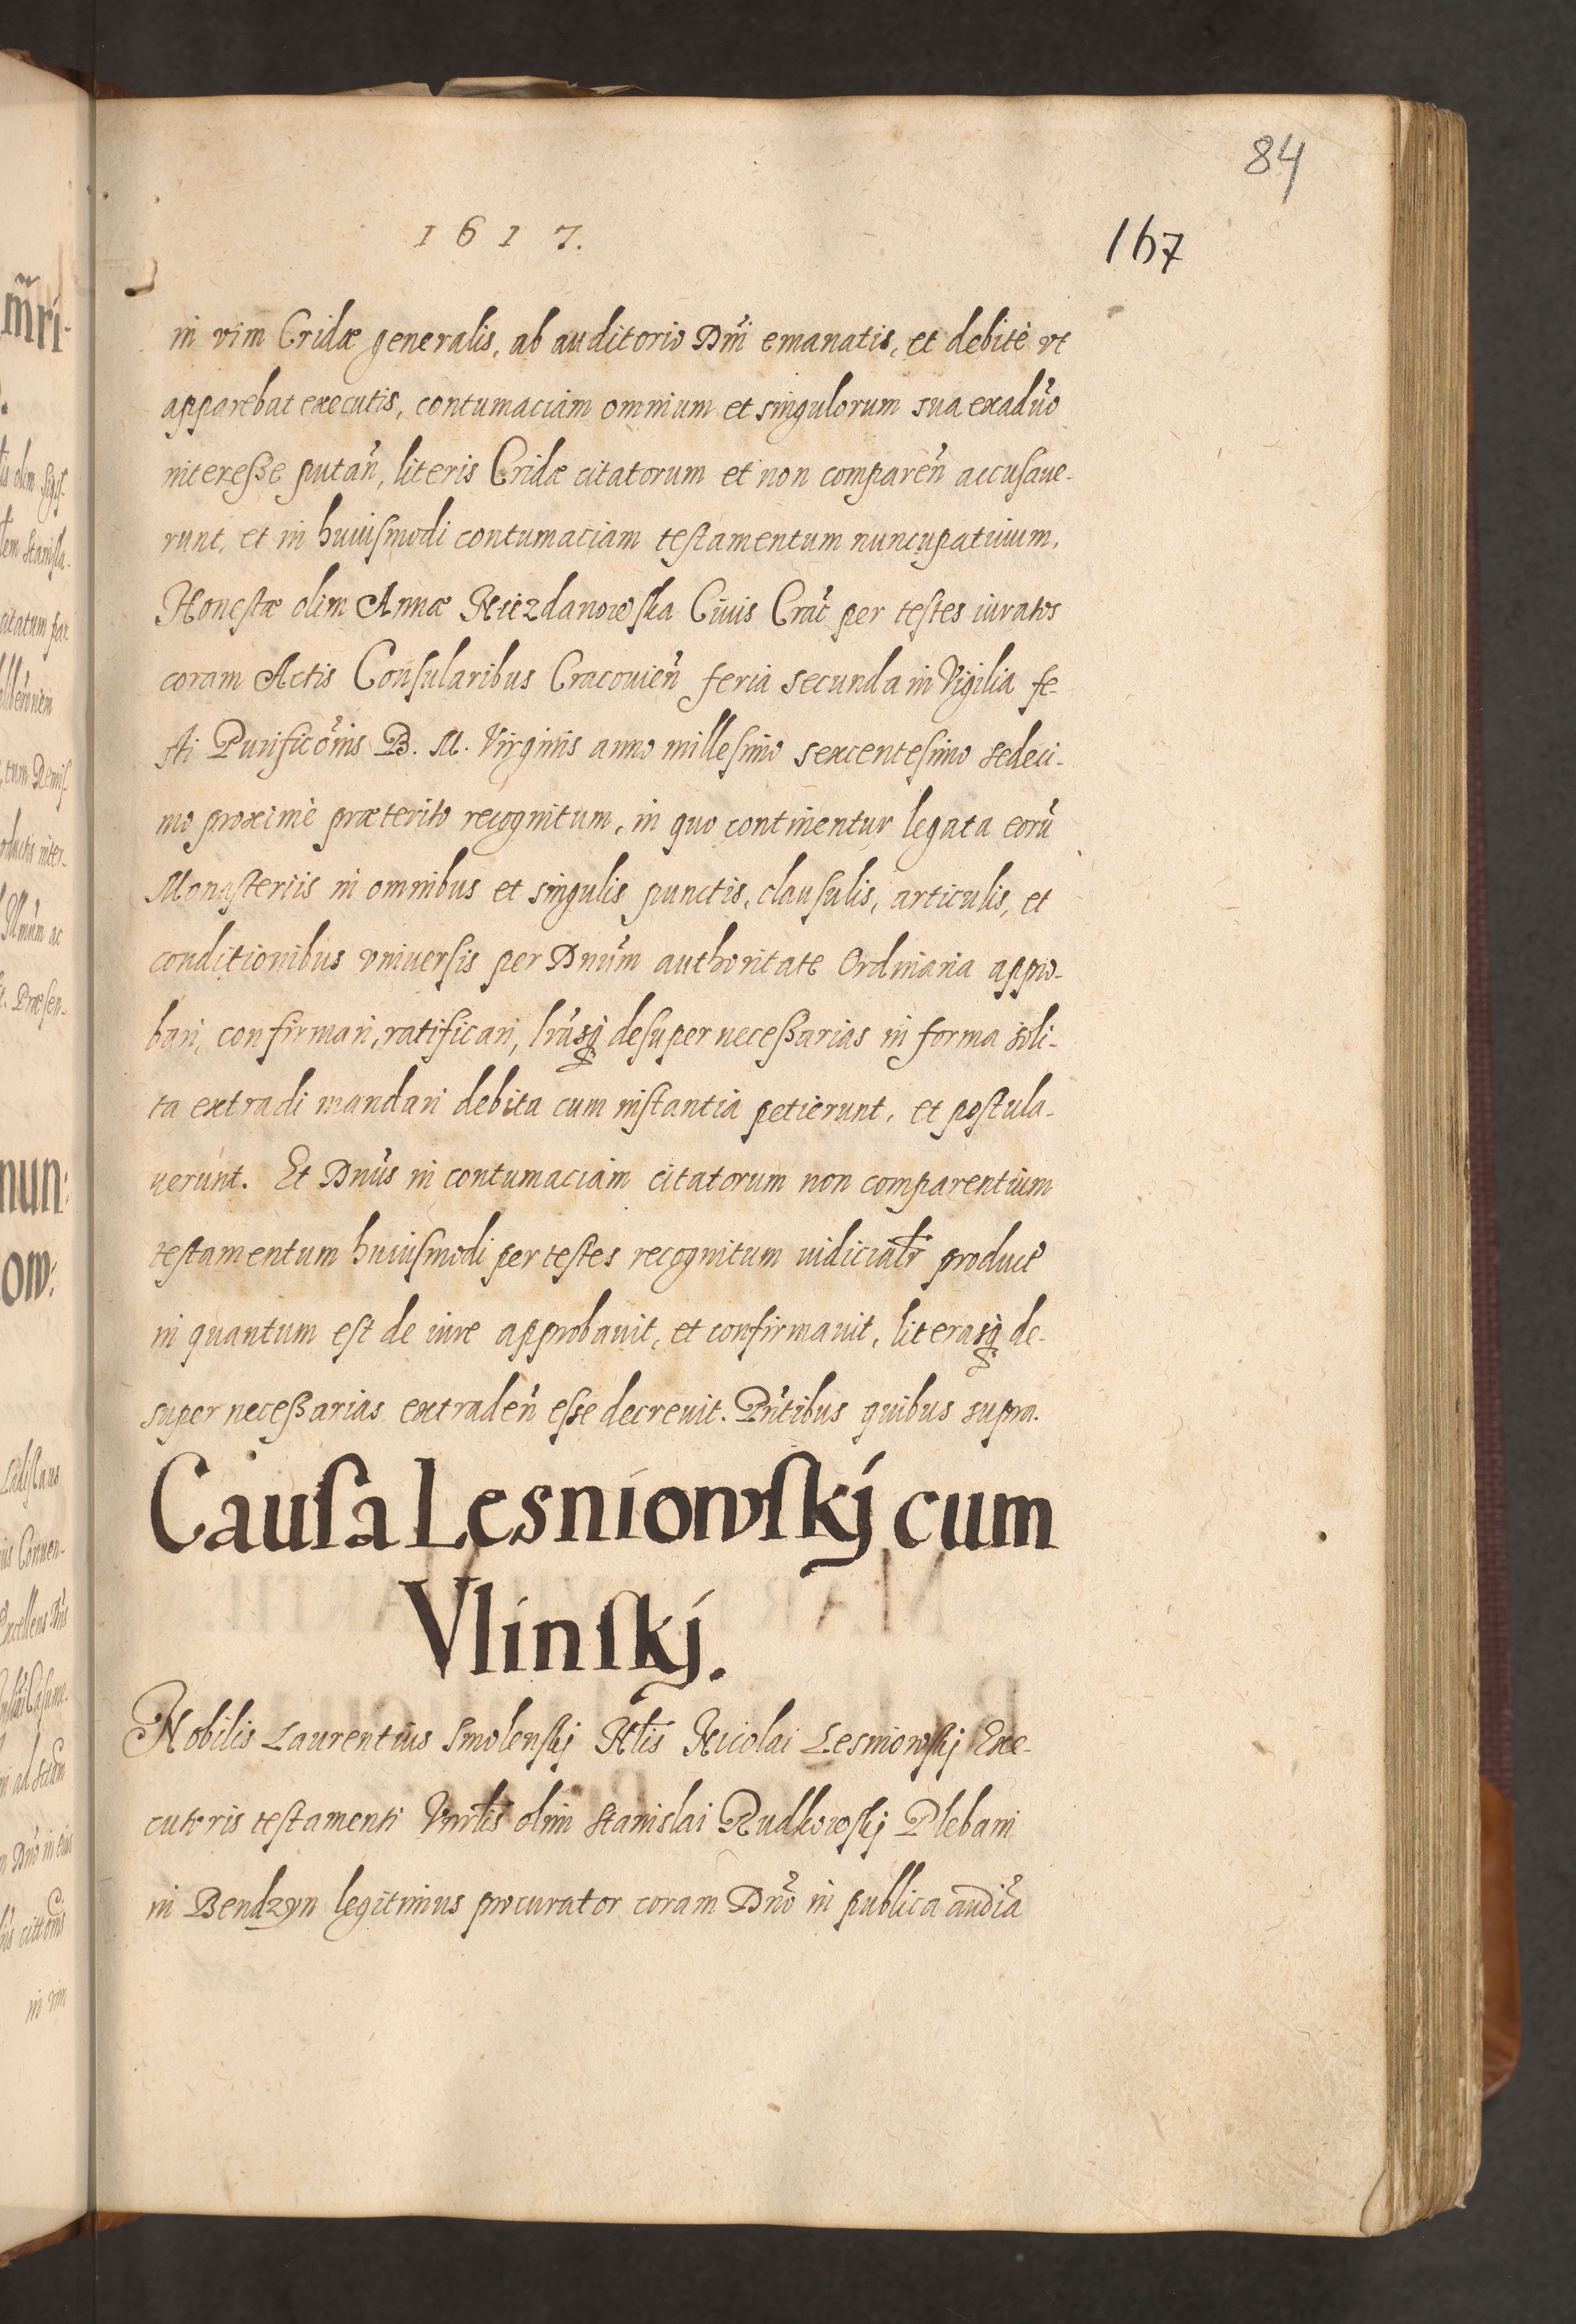 84
1617.
167
in vim Cridæ generalis, ab auditorio Dn̄i emanatis, et debitè vt
apparebat executis, contumaciam omnium et singulorum sua exadūo
interesße putan̄, literis Cridæ citatorum et non comparen̄ accusaue-
runt, et in huiusmodi contumaciam testamentum nuncupatiuum,
Honestæ olim Annæ Niezdanowska Ciuis Crac̄ per testes iuratos
coram Actis Consularibus Cracouien̄ feria secunda in Vigilia fe-
sti Purificōnis B. M. Virginis anno millesimo sexcentesimo sedeci-
mo proximè præterito recognitum, in quo continentur legata eorū
Monasteriis in omnibus et singulis punctis, clausulis, articulis, et
conditionibus vniuersis per Dnūm authoritate Ordinaria appro-
bari, confirmari, ratificari, lrāsq̢ desuper necesßarias in forma soli-
ta extradi mandari debita cum instantia petierunt, et postula-
uerunt. Et Dnūs in contumaciam citatorum non comparentium
testamentum huiusmodi per testes recognitum iudicialr̄ produc̄t
in quantum est de iure approbauit, et confirmauit, literasq̢ de-
super necesßarias extraden̄ esse decreuit. Pn̄tibus quibus supra.
Causa Lesniowskj cum
Vlinskj.
Nobilis Laurentius Smolenskj Nbl̄is Nicolai Lesniowskj Exe-
cutoris testamenti Vnrl̄is olim Stanislai Rudkowskj Plebani
in Bendzyn legitimus procurator coram Dnō in publica audīa